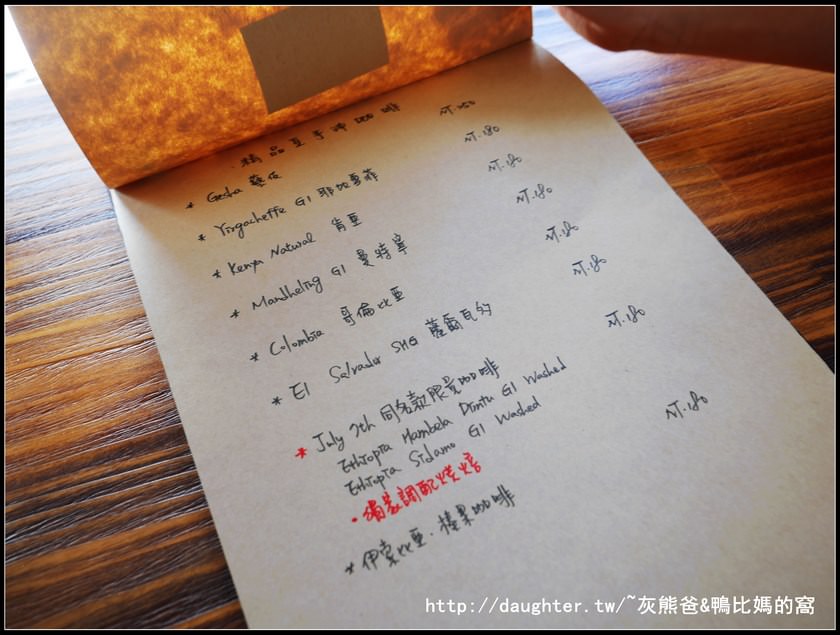 精品豆手沖咖啡
* Gesha 藝伎 NT.250
* Yirgacheffe G1 耶加雪菲 NT.180
* Kenya Natural 肯亞 NT.180
* Mandheling G1 曼特寧 NT.180
* Colombia 哥倫比亞 NT.180
* El Salvador SHG 薩爾瓦多 NT.180
* July 7th 同名款限量咖啡 NT.180
Ethiopia Hambela Dimtu G1 Washed
Ethiopia Sidamo G1 Washed
·獨家調配烘焙
* 伊索比亞·榛果咖啡 NT.180
http://daughter.tw/~灰熊爸&鴨比媽的窩